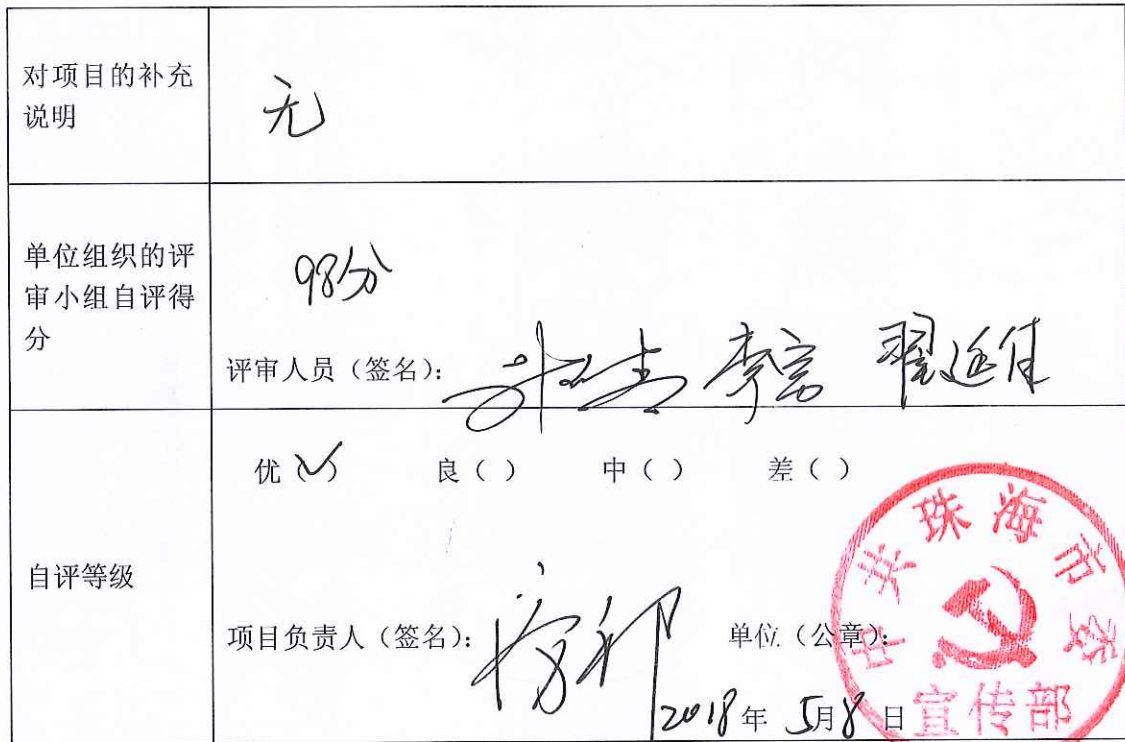 对项目的补充
说明
无
单位组织的评
审小组自评得
分
98分
评审人员（签名）：
李言 翟延佳
自评等级
优（✓） 良（ ） 中（ ） 差（ ）
项目负责人（签名）：
单位（公章）：
2018年 5月8日
中共珠海市委
宣传部